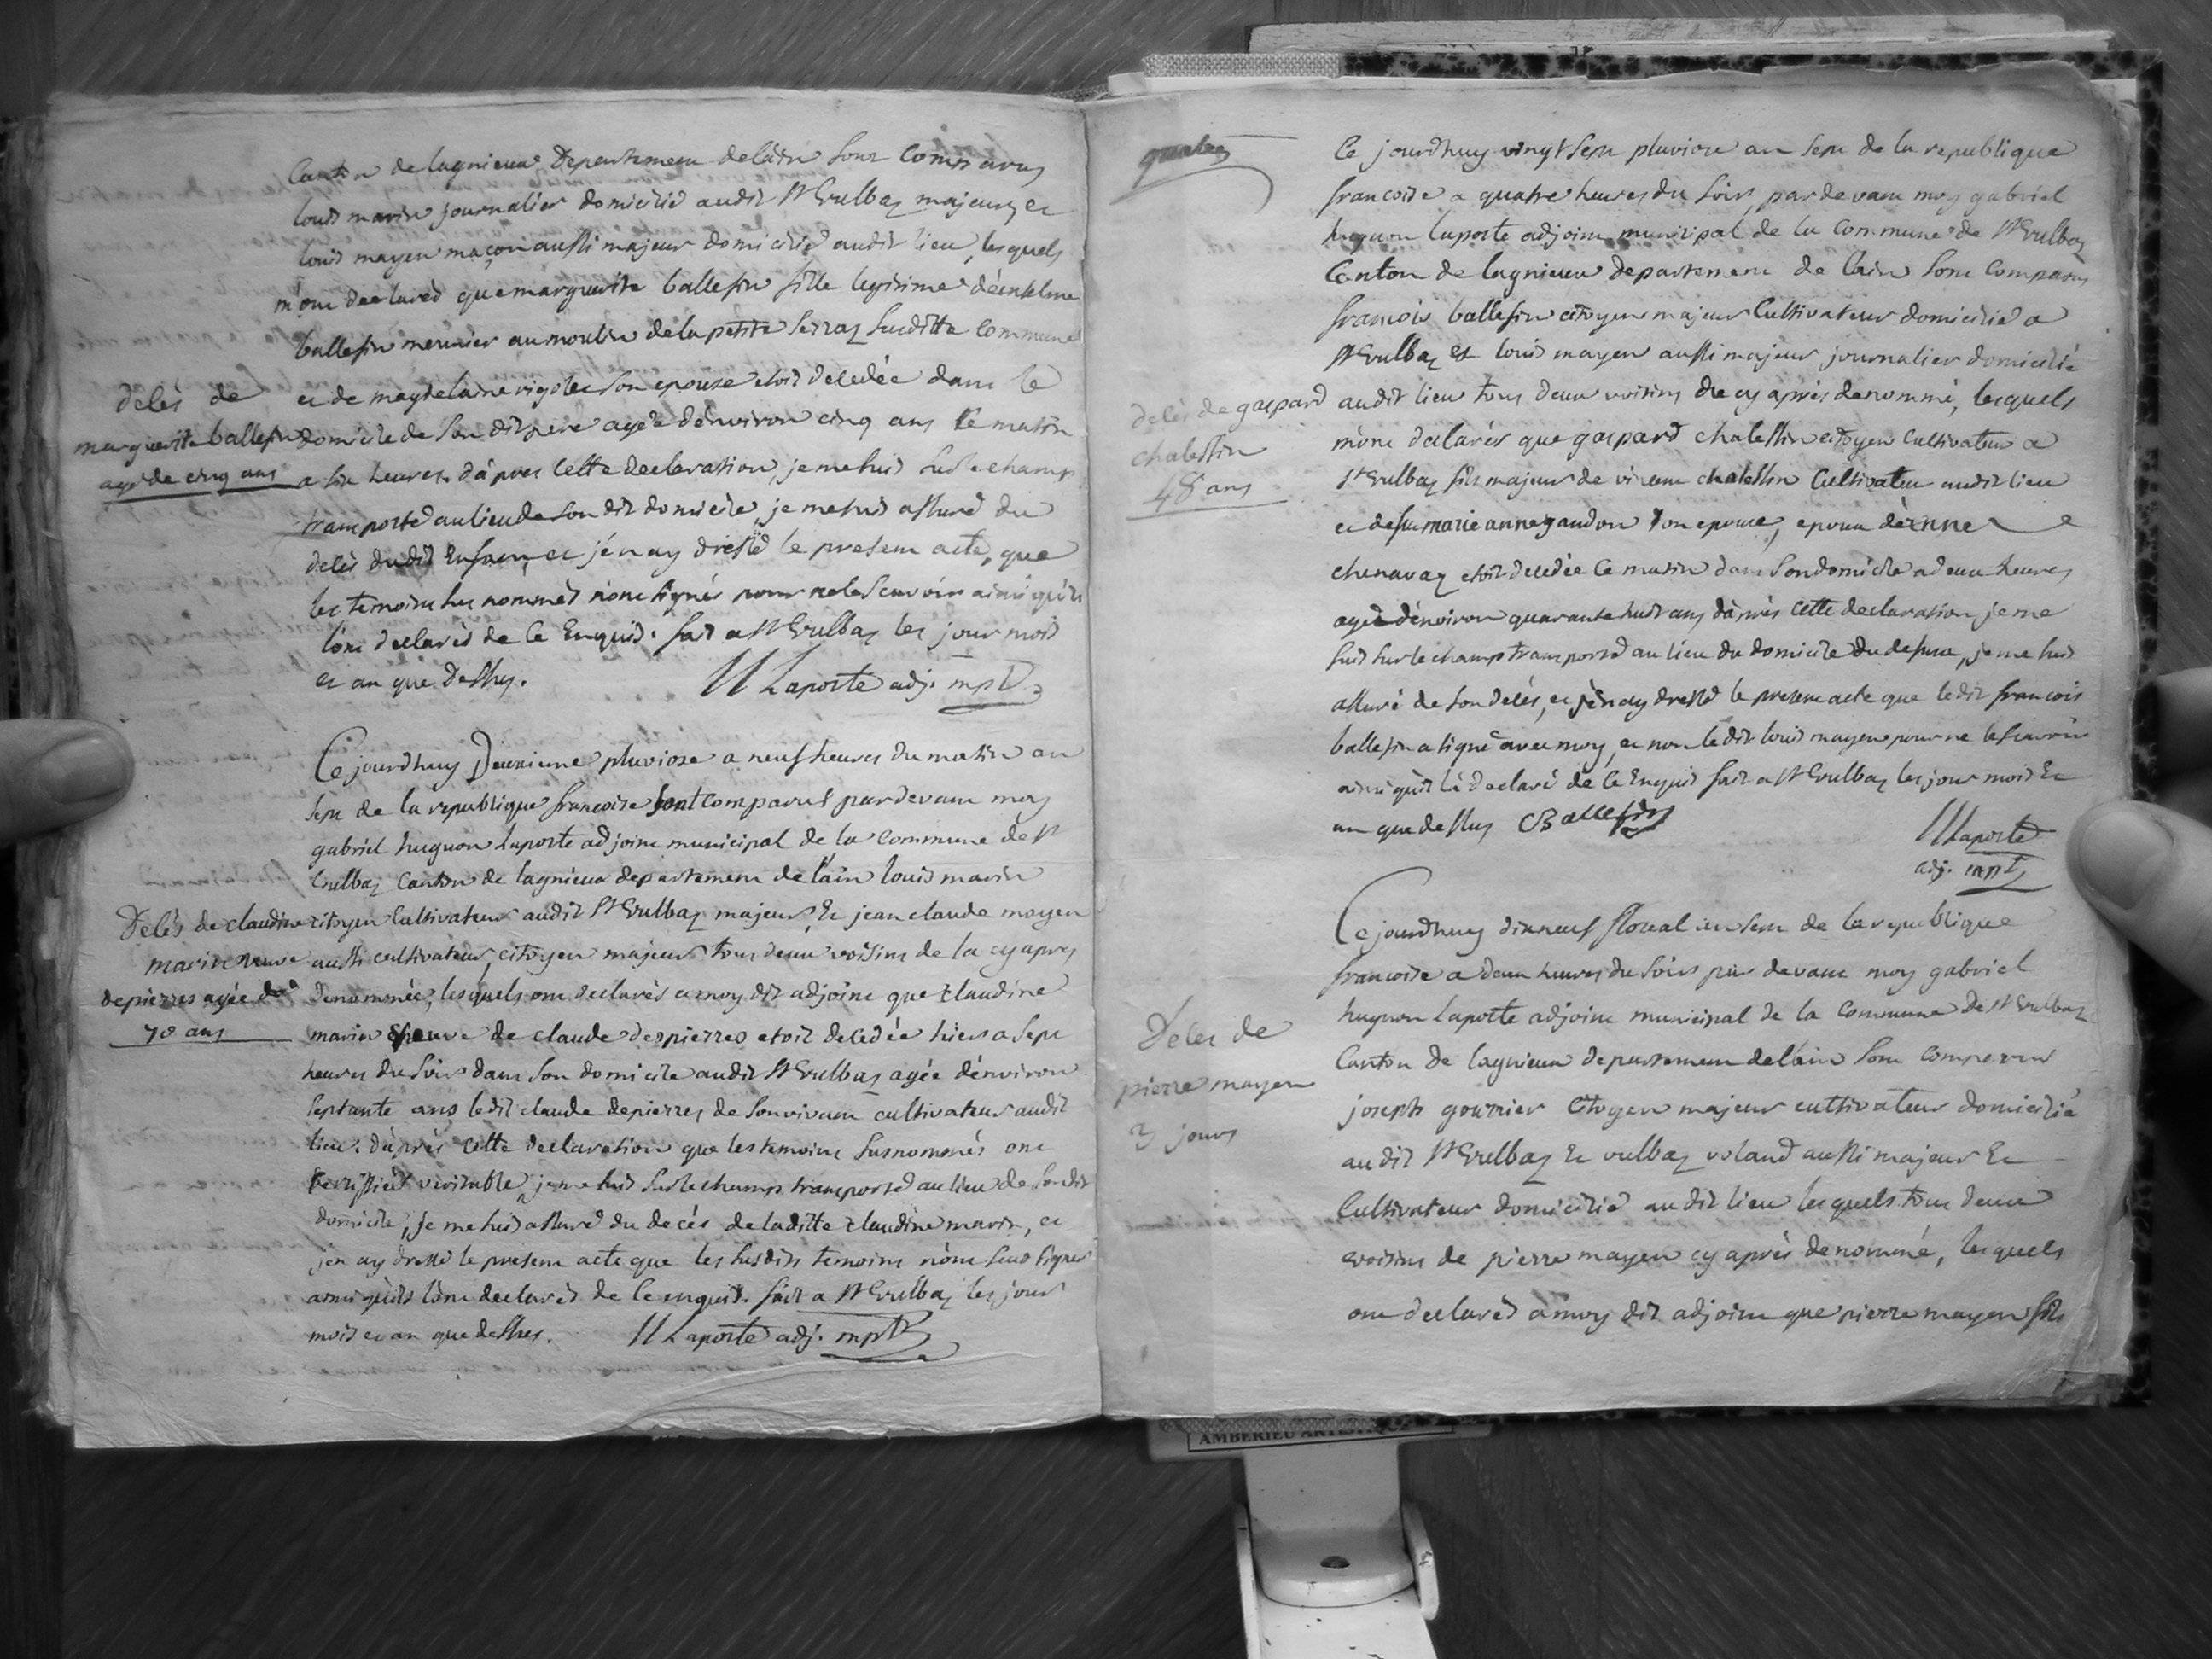 Canton de lagnieux Departement delain sont Comparus
louis marin journalier domicilié audit St Vulbaz majeurs et
louis mayen maçon aussi majeur domicilié audit lieu, lesquels
m'ont declarés que marguerite ballefin fille legitime d'entelme
ballefin meunier au moulin de la petite serraz susditte commune
et de magdelaine vigolet son epouse etoit decedée dans le
decès de
marguerite ballefin
agée de cinq ans
domicile de son dit pere agée d'environ cinq ans ce matin
a six heures. d'apres cette declaration, je me suis sur le champ
transporté au lieu de son dit domicile, je me suis assuré du
decès dudit Enfant, et j'en ay dressé le present acte, que
les temoins sus nommés n'ont signés pour ne le scavoir ainsi qu'ils
l'ont declarés de ce Enquis. fait a St Vulbaz les jour mois
et an que dessus. H Laporte adj. mpl
Cejourdhuy Deuxieme pluviose a neuf heures du matin an
sept de la republique francoise sont comparus pardevant moy
gabriel huguon laporte adjoint municipal de la Commune de St
Vulbaz Canton de lagnieux departement de lain louis marin
Decès de claudine
marin veuve
depierres agée de
70 ans
citoyen Cultivateur audit St Vulbaz majeur, Et jean claude mayen
aussi cultivateur, citoyen majeur tous deux voisins de la cy apres
denommée, lesquels ont declarés a moy dit adjoint que claudine
marin veuve de claude despierres etoit decedée hier a sept
heures du soir dans son domicile audit St Vulbaz agée d'environ
septante ans ledit claude depierres de son vivant cultivateur audit
lieu. d'après cette declaration que les temoins susnommés ont
certiffiés veritable, je me suis sur le champ transporté au lieu de son dit
domicile, je me suis assuré du decés de laditte claudine marin, et
j'en ay dressé le present acte que les susdits temoins n'ont seus signer
ainsi qu'ils l'ont declarés de ce enquis. fait a St Vulbaz les jour
mois et an que dessus. H Laporte adj. mpl
quatre
Ce jourdhuy vingt sept pluviose an sept de la republique
francoise a quatre heures du soir, pardevant moy gabriel
huguon laporte adjoint municipal de la Commune de St Vulbaz
Canton de lagnieux departement de lain sont comparus
francois ballefin citoyen majeur Cultivateur domicilié a
St Vulbaz et louis mayen aussi majeur journalier domicilié
decès de gaspard
chalestin
48 ans
audit lieu tous deux voisins du cy après denommé, lesquels
m'ont declarés que gaspard chalestin citoyen cultivateur a
St Vulbaz fils majeur de vincent chalestin Cultivateur audit lieu
et de fut marie anne gaudon son epouse, epoux d'Enne
chenavaz etoit decedée ce matin dans son domicile a deux heures
agée d'environ quarante huit ans d'après cette declaration je me
suis sur le champ transporté au lieu du domicile du defunt, je me suis
assuré de son decès, et j'en ay dressé le present acte que ledit francois
ballefin a signé avec moy, et non le dit louis mayen pour ne le scavoir
ainsi qu'il l'a declaré de ce Enquis fait a St Vulbaz les jour mois Et
an que dessus Ballefin
H Laporte
adj. mpl
Cejourdhuy dixneuf floreal an sept de la republique
francoise a deux heures du soir par devant moy gabriel
huguon Laporte adjoint municipal de la Commune de St Vulbaz
Canton de lagnieux departement de lain sont comparus
Deces de
pierre mayen
3 jours
joseph gourrier Citoyen majeur cultivateur domicilié
audit St Vulbaz Et vulbaz voland aussi majeur Et
Cultivateur domicilié audit lieu lesquels tous deux
voisins de pierre mayen cy après denommé, lesquels
ont declarés a moy dit adjoint que pierre mayen fils